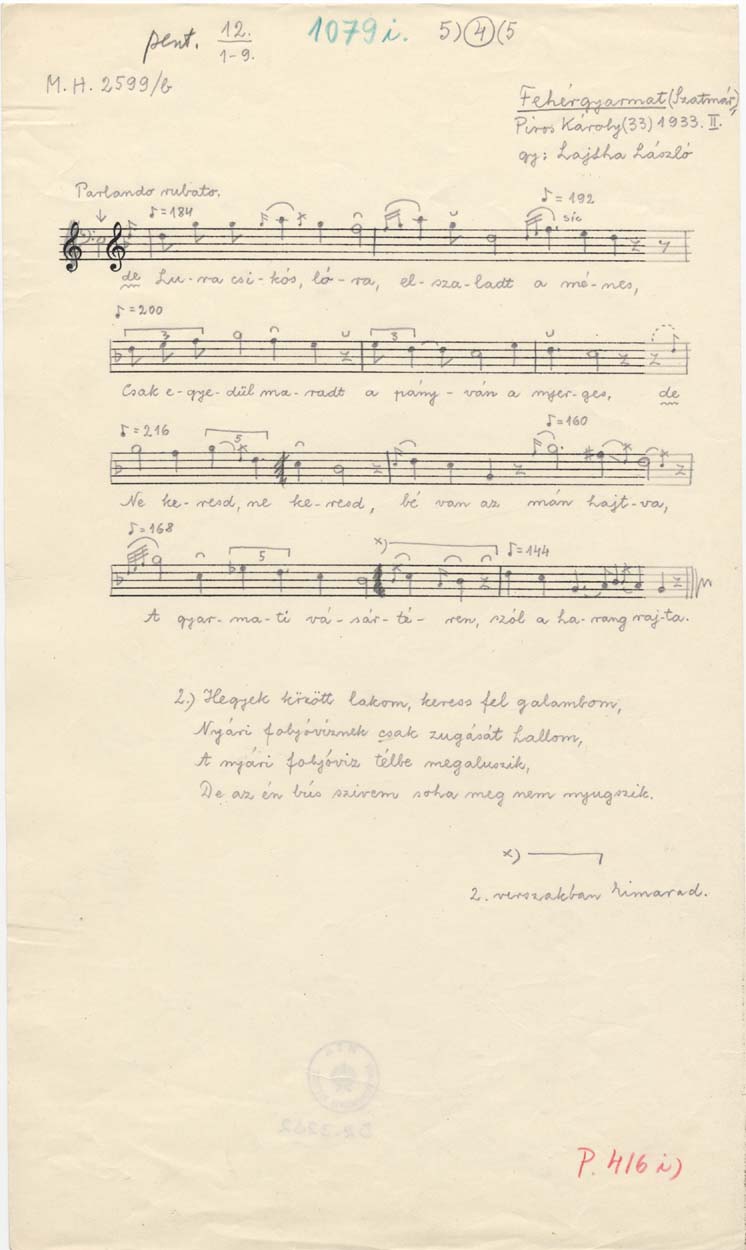 pent. 12. / 1-9. 1079 i. 5)④(5
M. H. 2599/b
Fehérgyarmat (Szatmár)
Piros Károly (33) 1933. II.
gy: Lajtha László
Parlando rubato.
♪=184 ♪=192
sic
de Lu-ra csi-kós, ló-ra, el-sza-ladt a mé-nes,
♪=200
3 3
Csak e-gye-dül ma-radt a pány-ván a nyer-ges, de
♪=216 5 ♪=160
Ne ke-resd, ne ke-resd, bé van az mán hajt-va,
♪=168 5 x) ♪=144
A gyar-ma-ti vá-sár-té-ren, szól a ha-rang raj-ta.
2.) Hegyek között lakom, keress fel galambom,
Nyári folyóviznek csak zugását hallom,
A nyári folyóviz télbe megaluszik,
De az én bús szivem soha meg nem nyugszik.
x)
2. verszakban kimarad.
P. 416 i)